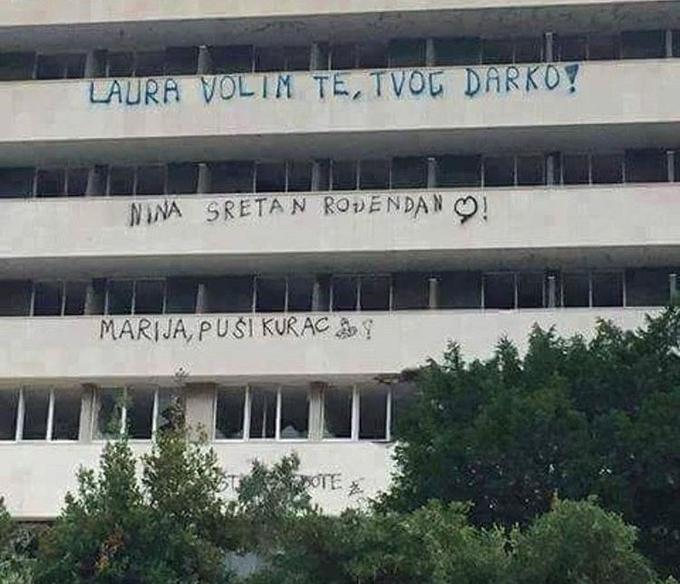 LAURA VOLIM TE, TVOG DARKO!
NINA SRETAN ROĐENDAN !
MARIJA, PUŠI KURAC !